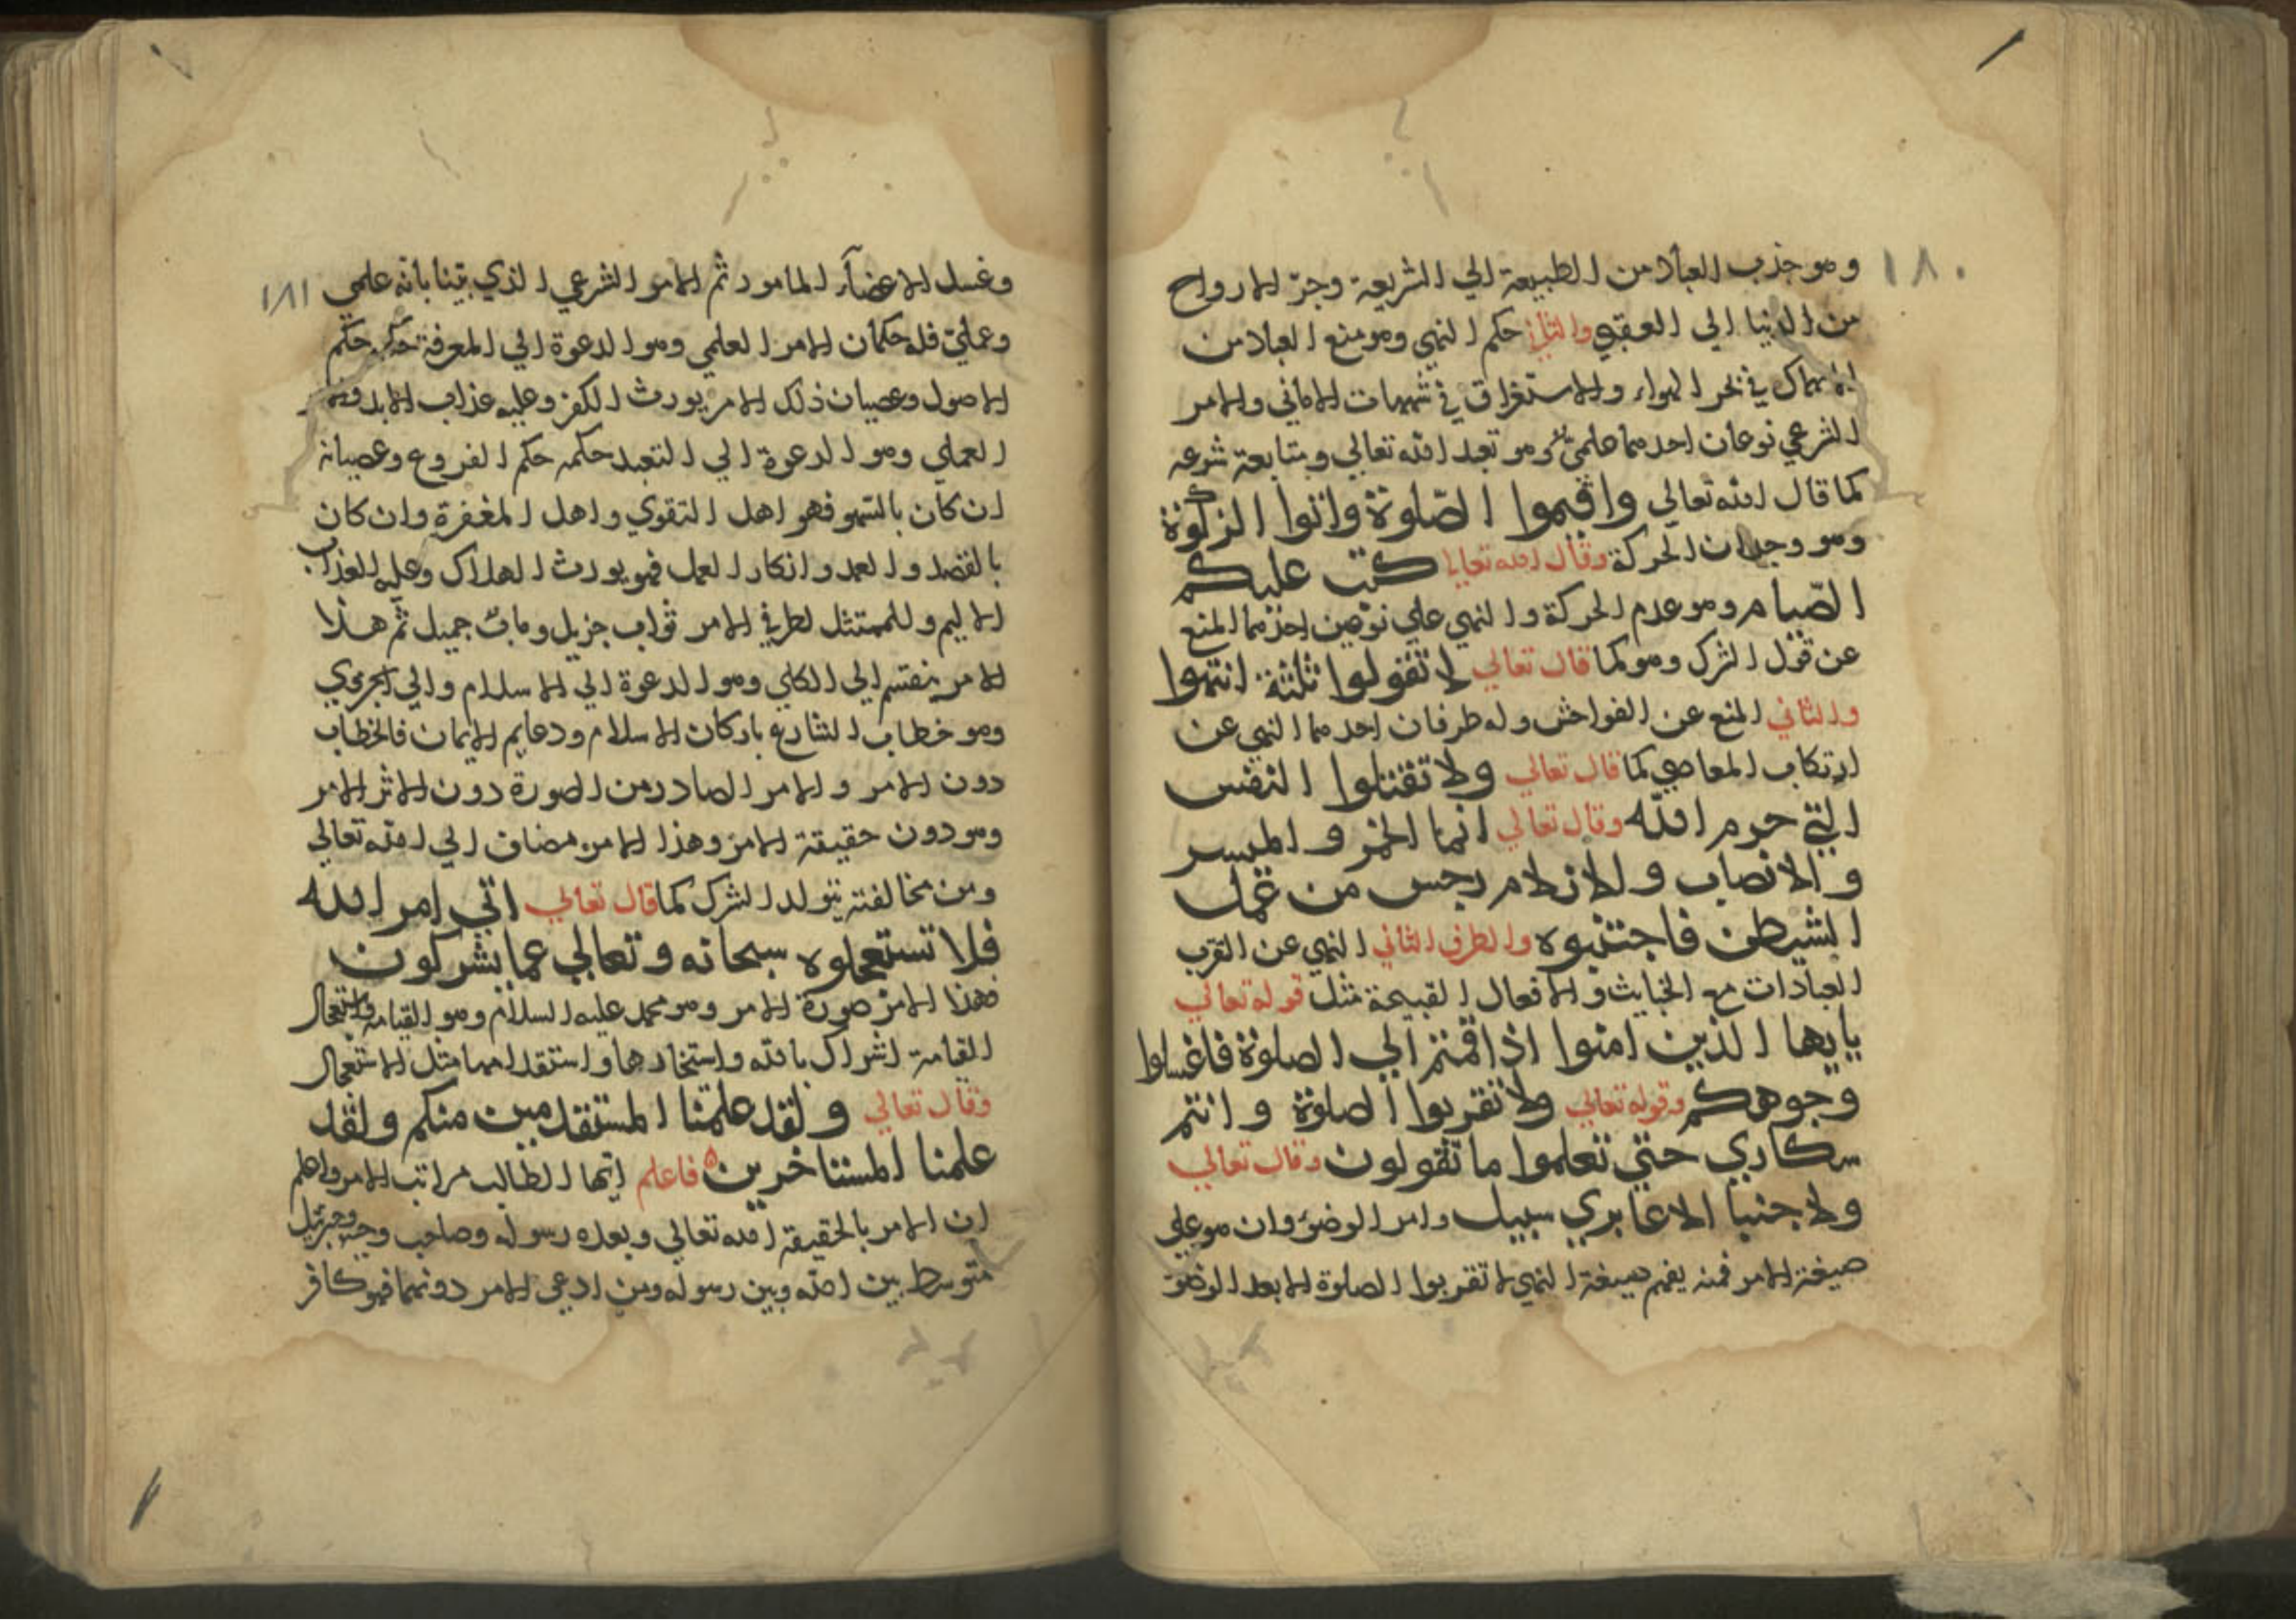 ١٨٠
وهو جذب العباد من الطبيعة الي الشريعة وجرّ الارواح
من الدنيا الي العقبي والثاني حكم النهي وهو منع العباد من
الانهماك في بحر الهواء والاستغراق في شبهات الاماني والامر
الشرعي نوعان احدهما علمي وهو تعبد الله تعالي ومتابعة شرعه
كما قال الله تعالي واقيموا الصّلوة واتوا الزكوة
وهو وجدان الحركة وقال الله تعالي كتب عليكم
الصّيام وهو عدم الحركة والنهي علي نوعين احدهما المنع
عن قول الشرك وهو كما قال تعالي لا تقولوا ثلثة انتهوا
والثاني المنع عن الفواحش وله طرفان احدهما النهي عن
ارتكاب المعاصي كما قال تعالي ولا تقتلوا النفس
التي حرم الله وقال تعالي انما الخمر والميسر
والانصاب والازلام رجس من عمل
الشيطن فاجتنبوه والطرف الثاني النهي عن القرب
العبادات مع الخبايث والافعال القبيحة مثل قوله تعالي
يايها الذين امنوا اذا قمتم الي الصلوة فاغسلوا
وجوهكم وقوله تعالي ولا تقربوا الصلوة وانتم
سكاري حتي تعلموا ما تقولون وقال تعالي
ولا جنبا الا عابري سبيل وامر الوضوء وان هو علي
صيغة الامر فمنه يفهم صيغة النهي لا تقربوا الصلوة الا بعد الوضوء
١٨١
وغسل الاعضآء المامور ثم الامر الشرعي الذي بيّنا بانه علمي
وعمليّ فله حكمان الامر العلمي وهو الدعوة الي المعرفة حكمه حكم
الاصول وعصيان ذلك الامر يورث الكفر وعليه عذاب الابد
العملي وهو الدعوة الي التعبد حكمه حكم الفروع وعصيانه
ان كان بالسّهو فهو اهل التقوي واهل المغفرة وان كان
بالقصد والعمد وانكار العمل فهو يورث الهلاك وعليه العذاب
الاليم وللممتثل لطرفي الامر ثواب جزيل ومابٌ جميل ثم هذا
الامر ينقسم الي الكلي وهو الدعوة الي الاسلام والي الجزوي
وهو خطاب الشارع باركان الاسلام ودعايم الايمان فالخطاب
دون الامر والامر الصادر من الصورة دون الاثر الامر
وهو دون حقيقة الامر وهذا الامر مضاف الي الله تعالي
ومن مخالفته يتولد الشرك كما قال تعالي اتي امر الله
فلا تستعجلوه سبحانه وتعالي عما يشركون
فهذا الامر صورة الامر وهو محمد عليه السلام وهو القيامة واستعجال
القيامة اشراك بالله واستخارها واستقدامها مثل الاستعجال
وقال تعالي ولقد علمنا المستقدمين منكم ولقد
علمنا المستاخرين فاعلم ايّها الطالب مراتب الامر واعلم
ان الامر بالحقيقة الله تعالي وبعده رسوله وصاحب وحيه وجبرئيل
متوسط بين الله وبين رسوله ومن ادعي الامر دونهما فهو كافر